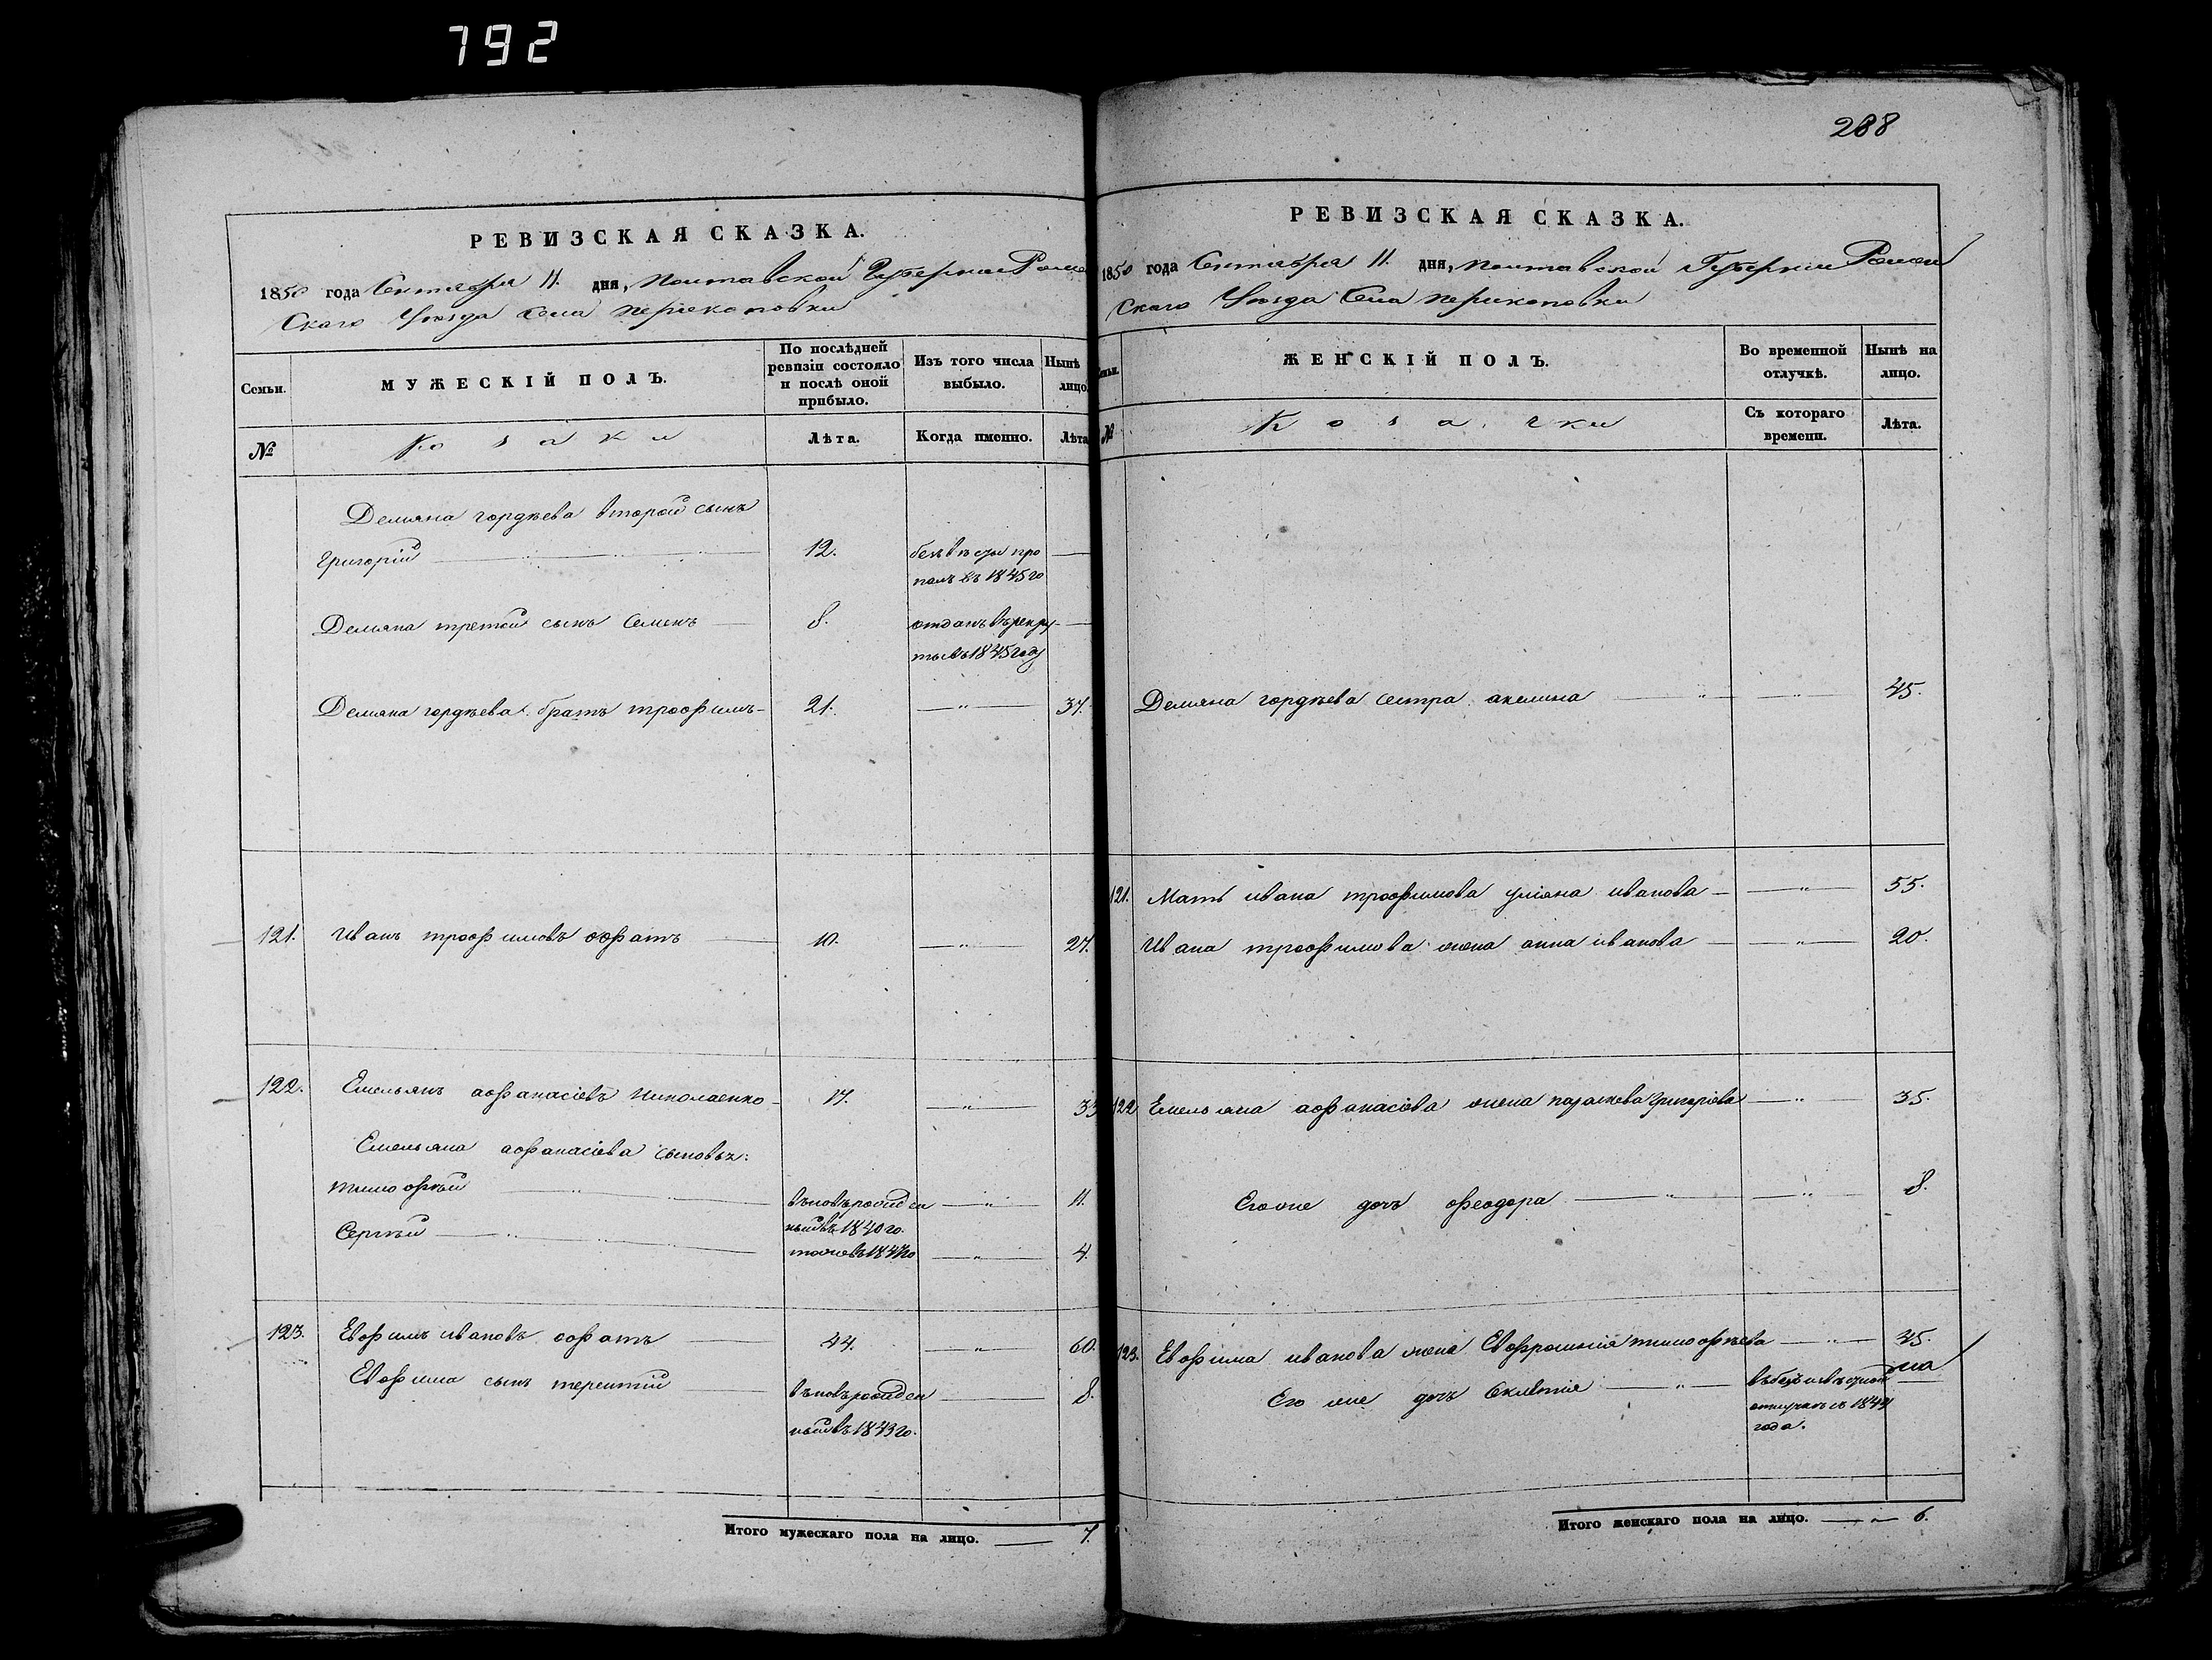 792
288
РЕВИЗСКАЯ СКАЗКА.
1850 года Сентября 11. дня, Полтавской Губернии Роме
Скаго Уѣзда Села Перекоповки
Семьи.
МУЖЕСКІЙ ПОЛЪ.
По послѣдней
ревизіи состояло
и послѣ оной
прибыло.
Изъ того числа
выбыло.
Нынѣ
лицо.
№
Козаки
Лѣта.
Когда именно.
Лѣта
Демяна гордѣева второй сынъ
григорій 12. безвѣсти про
палъ въ 1845 го
Демяна третой сынъ Семенъ 8. отданъ врекру
ты въ 1845 году
Демяна гордѣева братъ трофимъ 21. " 37.
121. Иванъ трофимовъ 10. " 27.
122. Емельянъ афанасіевъ Николаенко 17. " 33
Емельяна афанасіева сыновья:
тимофѣй вновьрожден " 11.
ный въ 1840 го.
Сергѣй тоже въ 1847 го " 4.
123. Евфимъ ивановъ 44. " 60.
Евфима сынъ терентий вновьрожден 8.
ный въ 1843 го.
Итого мужескаго пола на лицо. 7.
РЕВИЗСКАЯ СКАЗКА.
1850 года Сентября 11. дня, Полтавской Губернии Ромен
Скаго Уѣзда Села Перекоповки
ЖЕНСКІЙ ПОЛЪ.
Во временной
отлучкѣ.
Нынѣ на
лицо.
№
Козачки
Съ котораго
времени.
Лѣта.
Демяна гордѣева сестра акелина " " 45.
121. Мать ивана трофимова уляна иванова " 55.
Ивана трофимова жена анна иванова " 20.
122 Емельяна афанасіева жена параскева григоріева " 35.
Егоже дочь феодора " " 8.
123. Евфима иванова жена Евфросинія тимофѣева " 45.
Его же дочь "
отлучкѣ съ 1844
года.
Итого женскаго пола на лицо. " 6.